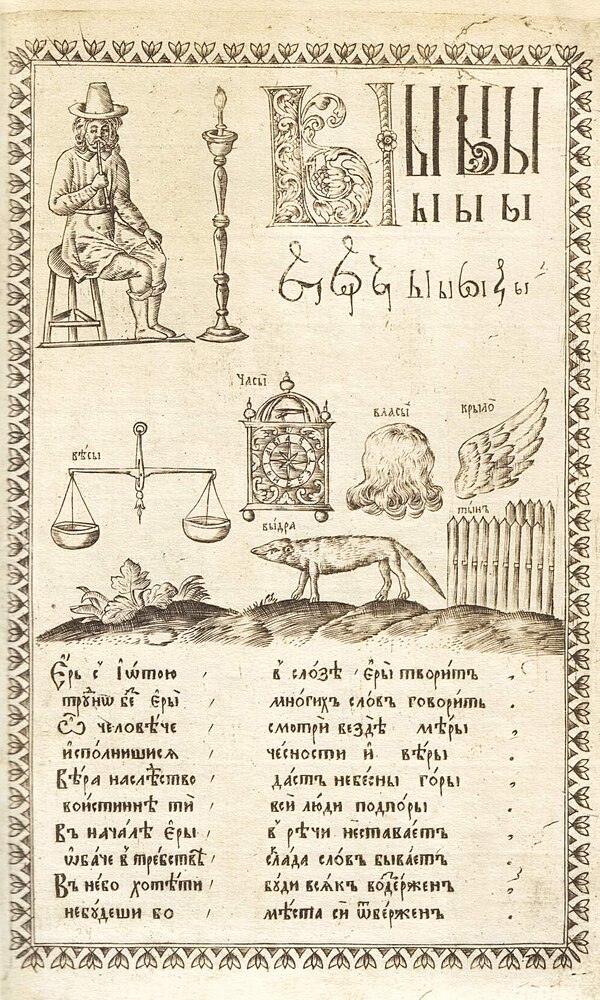 Ы ы ы ы
ы ы ы
ы ы ы
часы̀
власы̀
крыло̀
вѣсы
выдра
тынъ
Е҆́рь с̾ І҆ѡ́тою , в̾ сло́зѣ е҆ры̀ твори́тъ ,
мно́гихъ сло́въ говори́ть .
Ѿ человѣ́че , смотрѝ вездѣ̀ мѣ́ры ,
и҆спо́лнишися , че́сности и҆ вѣ́ры .
Вѣ́ра наслѣ́ство , да́стъ небе́сны го́ры ,
вои́стиннѣ тѝ , всѝ лю́ди подпо́ры .
Въ нача́лѣ е҆ры̀ , в̾ рѣ́чи нестава́етъ ,
ѡ҆ба́че в̾ тре́бствѣ , скла́да сло́въ быва́етъ .
Въ не́бо хотѣ́ти , бу́ди вся́къ
небу́деши во , мѣ́ста сѝ ѿве́рженъ .